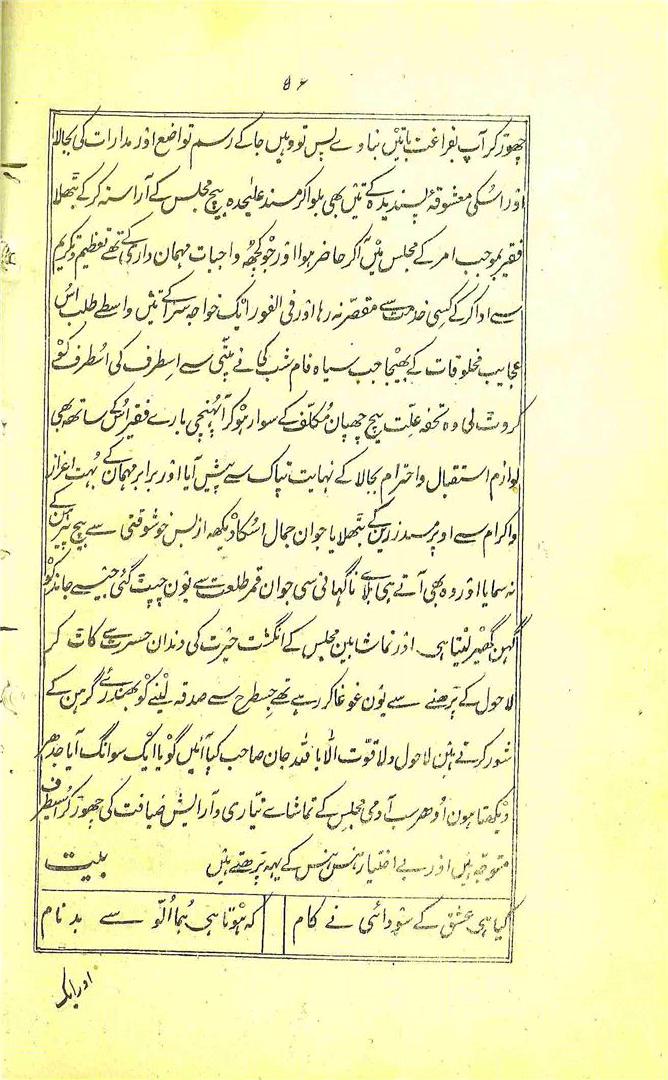 ۵۶
چھوڑ کر آپ بفراغت باتیں بناوے پس تو وہیں جا کے رسم تواضع اور مدارات کی بجالا
اور اسکی معشوقۂ پسندیدہ کے تئیں بھی بلوا کر مسند علیٰحدہ بیچ مجلس کے آراستہ کر کے بٹھلا
فقیر بموجب امر کے مجلس میں آکر حاضر ہوا اور جو کچھ واجبات مہمانداری کے تھے تعظیم و تکریم
سے ادا کر کے کسی خدمت سے مقصر نہ رہا اور فی الفور ایک خواجہ سرا کے تئیں واسطے طلب اس
عجایب مخلوقات کے بھیجا جب سیاہ فام شب کی نے پٹی سے اسطرف کی اسطرف کو
کروٹ لی وہ تحفہ علت بیچ چھپان مکلف کے سوار ہو کر آ پہنچی بارے فقیر اس کے ساتھ بھی
لوازم استقبال و احترام بجالا کے نہایت تپاک سے پیش آیا اور برابر مہمان کے بہت اعزاز
و اکرام سے اوپر مسند زریں کے بٹھلایا جوان جمال اسکا دیکھ از بس خوشوقتی سے بیچ پیرہن کے
نہ سمایا اور وہ بھی آتے ہی بلاے ناگہانی سی جوان قمر طلعت سے یون چپٹ گئی جیسے چاند کو
گہن گھیر لیتا ہی اور تماشابین مجلس کے انگشت حیرت کی دندان حسرت سے کاٹ کر
لاحول کے پڑھنے سے یون غوغا کر رہے تھے جسطرح سے صدقہ لینے کو بھنڈرئے گرہن کے
شور کرتے ہین لاحول ولا قوت الا باللہ جان صاحب کیا آئیں گویا ایک سوانگ آیا جدھر
دیکھتا ہون اودھر سب آدمی مجلس کے تماشاے تیاری و آرایش ضیافت کی چھوڑ کر اسیطرف
متوجہ ہیں اور بے اختیار ہنس ہنس کے یہہ پڑھتے ہیں بیت
کیا ہی عشق کے سودائی نے کام کہ ہوتا ہی ہما الو سے بد نام
اور ایک